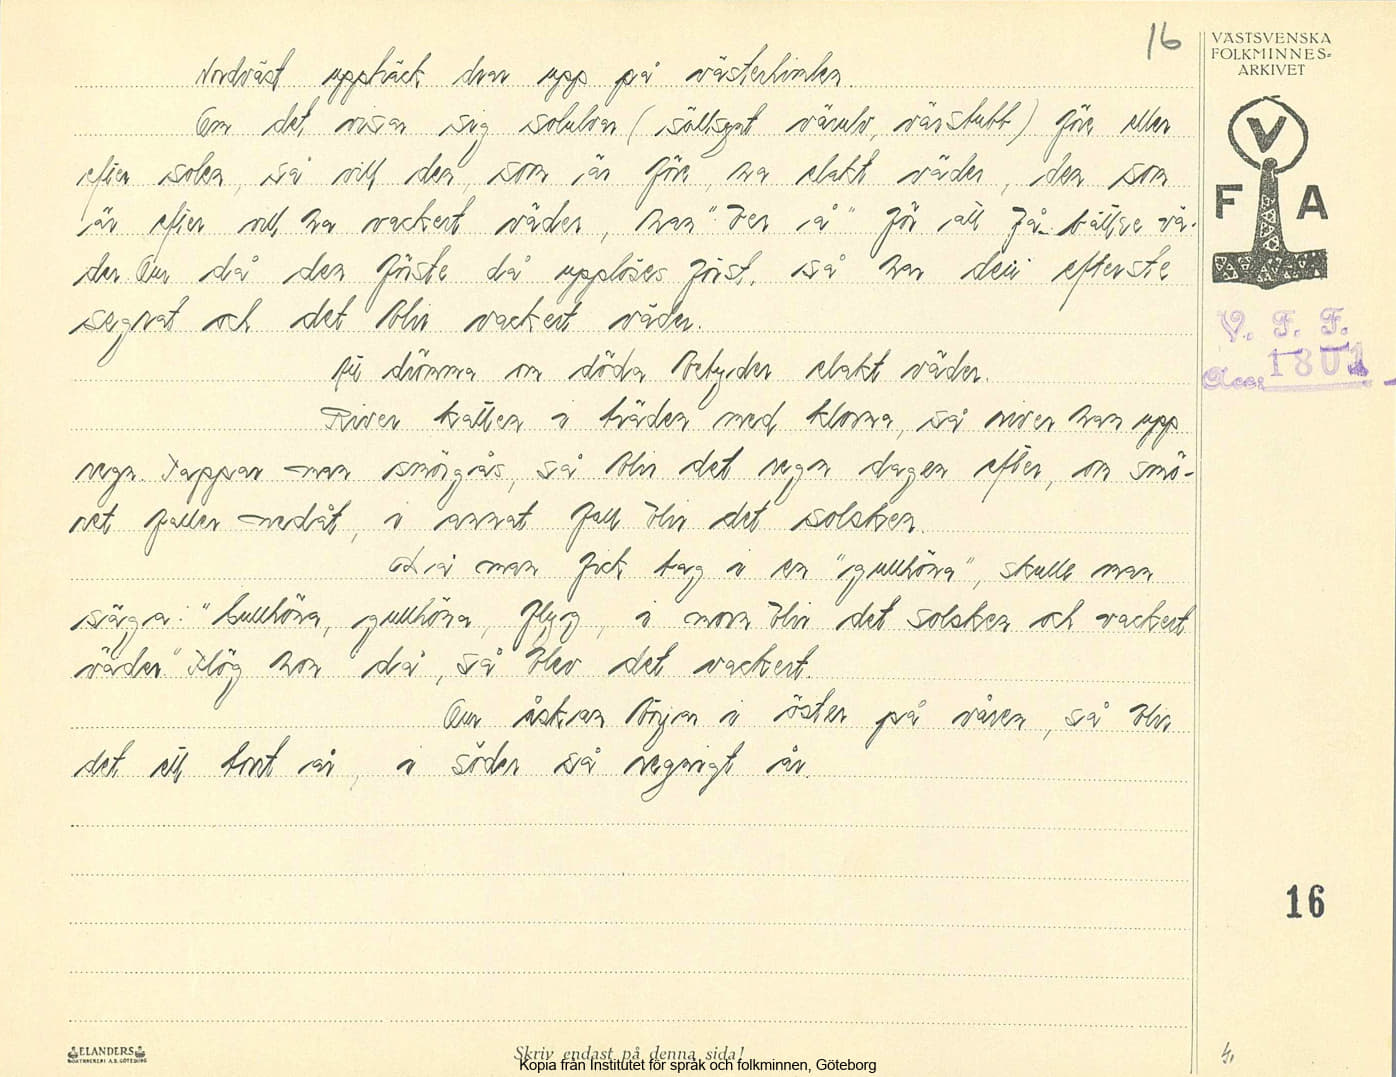 16
VÄSTSVENSKA
FOLKMINNES-
ARKIVET
V
F A
V. F. F.
Acc. 1801
Nordväst uppträck drar upp på västerhimlen.
Om det visar sig solulvar (sällsynt värulv, värstubb) före eller
efter solen, så vill den, som är före, ha elakt väder, den som
är efter vill ha vackert väder, han "ber å" för att få bättre vä-
der. Om då den förste då upplöses först, så har den efterste
segrat och det blir vackert väder.
Att drömma om döda betyder elakt väder.
River katten i träden med klorna, så river han upp
regn. Tappar man smörgås, så blir det regn dagen efter, om smö-
ret faller nedåt, i annat fall blir det solsken.
Då man fick tag i en "gullhöna", skulle man
säga: "Gullhöna, gullhöna, flyg, i morn blir det solsken och vackert
väder." Flög hon då, så blev det vackert.
Om åskan börjar i öster på våren, så blir
det ett torrt år, i söder så regnigt år.
16
ELANDERS
BOKTRYCKERI A.B. GÖTEBORG
Skriv endast på denna sida!
Kopia från Institutet för språk och folkminnen, Göteborg